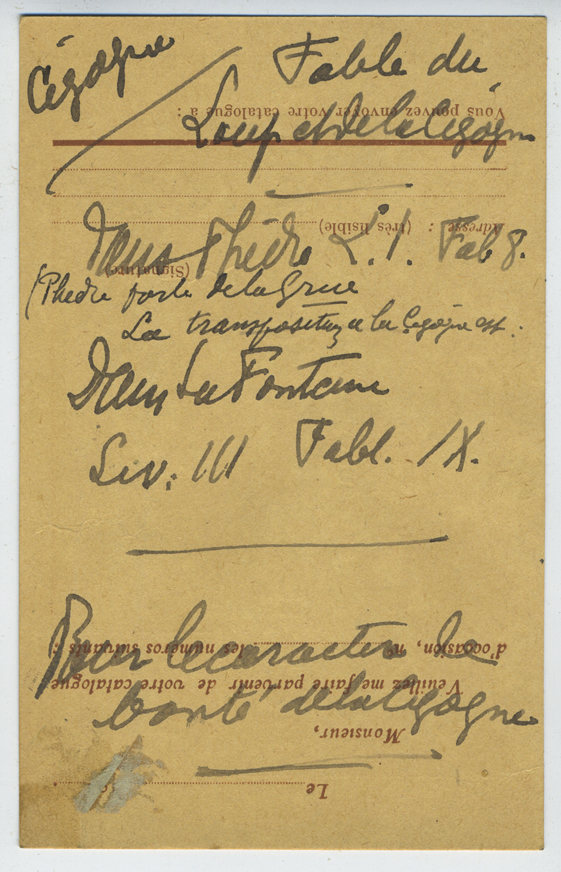 Cigogne
Fable du
Loup et de la Cigogne
Dans Phèdre L. I. Fab 8.
(Phèdre parle de la Grue
La transposition à la Cigogne est :
Dans La Fontaine
Liv. III Fabl. IX.
Pour le caractère de
bonté de la Cigogne
Le
Monsieur,
Veuillez me faire parvenir de votre catalogue
d'occasion, n° les numéros suivants :
(Signature)
Adresse : (très lisible)
Vous pouvez envoyer votre catalogue à :